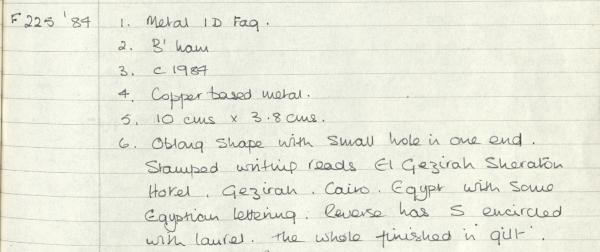 F 225 '84 1. Metal ID Faq.
2. B'ham
3. c 1984
4. Copper based metal.
5. 10 cms x 3.8 cms.
6. Oblong shape with small hole in one end.
Stamped writing reads El Gezirah Sheraton
Hotel. Gezirah. Cairo. Egypt with some
Egyptian lettering. Reverse has S encircled
with laurel. The whole finished in 'gilt'.